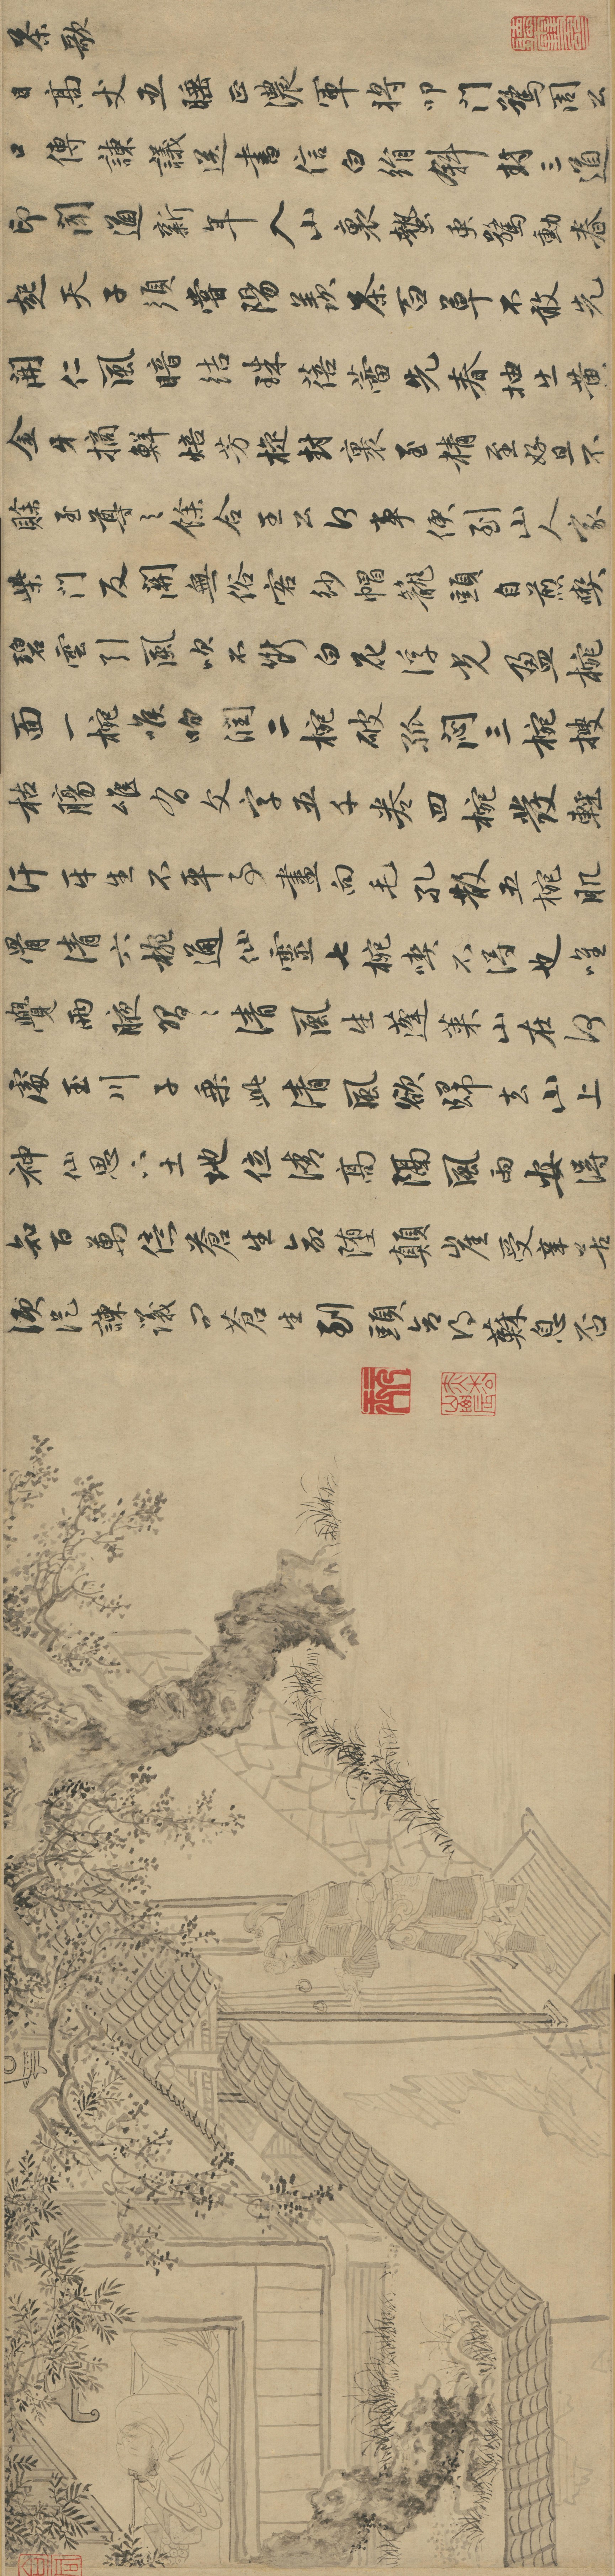 茶歌
日高丈五睡正濃軍將叩門驚周公
口傳諫議送書信白絹斜封三道
印聞道新年入山裏蟄虫驚動春
起天子須嘗陽羨茶百草不敢先
開仁風暗結珠蓓蕾先春抽出黃
金牙摘鮮焙芳旋封裹至精至好且不
賒至尊之餘合王公何事便到山人家
柴門反關無俗客紗帽籠頭自煎喫
碧雲引風吹不斷白花浮光盈椀
面一椀喉吻潤二椀破孤悶三椀搜
枯腸唯有文字五千卷四椀發輕
汗平生不平事盡向毛孔散五椀肌
骨清六椀通仙靈七椀喫不得也唯
覺兩腋習〻清風生蓬萊山在何
處玉川子乘此清風欲歸去山上
神仙思下土地位清高隔風雨安得
知百萬億蒼生命墮顛崖受辛苦
諫議問蒼生到頭合得蘇息否